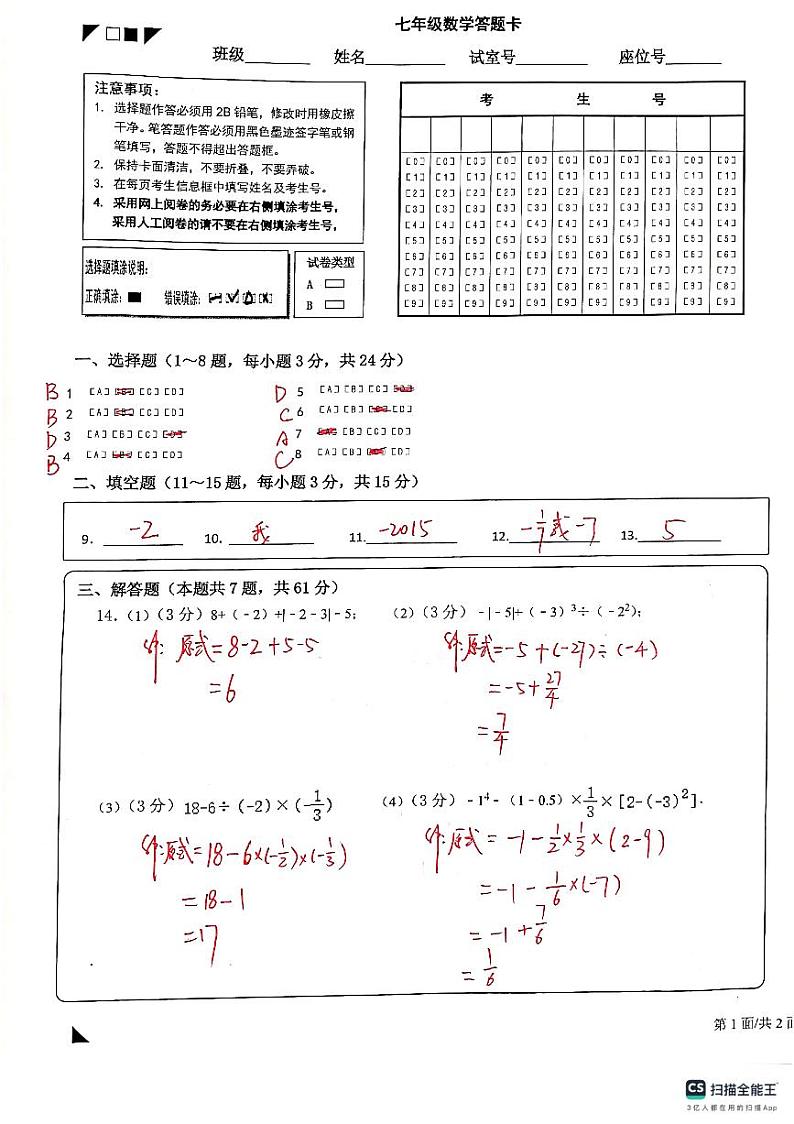 七年级数学答题卡
班级 姓名 试室号 座位号
注意事项：
1. 选择题作答必须用2B铅笔，修改时用橡皮擦
干净。笔答题作答必须用黑色墨迹签字笔或钢
笔填写，答题不得超出答题框。
2. 保持卡面清洁，不要折叠，不要弄破。
3. 在每页考生信息框中填写姓名及考生号。
4. 采用网上阅卷的务必要在右侧填涂考生号，
采用人工阅卷的请不要在右侧填涂考生号，
选择题填涂说明：
正确填涂：■ 错误填涂：
试卷类型
A
B
考 生 号
[0] [0] [0] [0] [0] [0] [0] [0] [0] [0] [0]
[1] [1] [1] [1] [1] [1] [1] [1] [1] [1] [1]
[2] [2] [2] [2] [2] [2] [2] [2] [2] [2] [2]
[3] [3] [3] [3] [3] [3] [3] [3] [3] [3] [3]
[4] [4] [4] [4] [4] [4] [4] [4] [4] [4] [4]
[5] [5] [5] [5] [5] [5] [5] [5] [5] [5] [5]
[6] [6] [6] [6] [6] [6] [6] [6] [6] [6] [6]
[7] [7] [7] [7] [7] [7] [7] [7] [7] [7] [7]
[8] [8] [8] [8] [8] [8] [8] [8] [8] [8] [8]
[9] [9] [9] [9] [9] [9] [9] [9] [9] [9] [9]
一、选择题（1～8题，每小题3分，共24分）
B 1 [A] [B] [C] [D] D 5 [A] [B] [C] [D]
B 2 [A] [B] [C] [D] C 6 [A] [B] [C] [D]
D 3 [A] [B] [C] [D] A 7 [A] [B] [C] [D]
B 4 [A] [B] [C] [D] C 8 [A] [B] [C] [D]
二、填空题（11～15题，每小题3分，共15分）
9. -2 10. 我 11. -2015 12. -1/7或-7 13. 5
三、解答题（本题共7题，共61分）
14.（1）（3分）8+（﹣2）+|﹣2﹣3|﹣5；
解：原式=8-2+5-5
=6
（2）（3分）﹣|﹣5|+（﹣3）³÷（﹣2²）；
解：原式=-5+(-27)÷(-4)
=-5+27/4
=7/4
（3）（3分）18-6÷(-2)×(-1/3)
解：原式=18-6×(-1/2)×(-1/3)
=18-1
=17
（4）（3分）﹣1⁴﹣（1﹣0.5）×1/3×[2-(-3)²].
解：原式=-1-1/2×1/3×(2-9)
=-1-1/6×(-7)
=-1+7/6
=1/6
第1面/共2面
CS 扫描全能王
3亿人都在用的扫描App